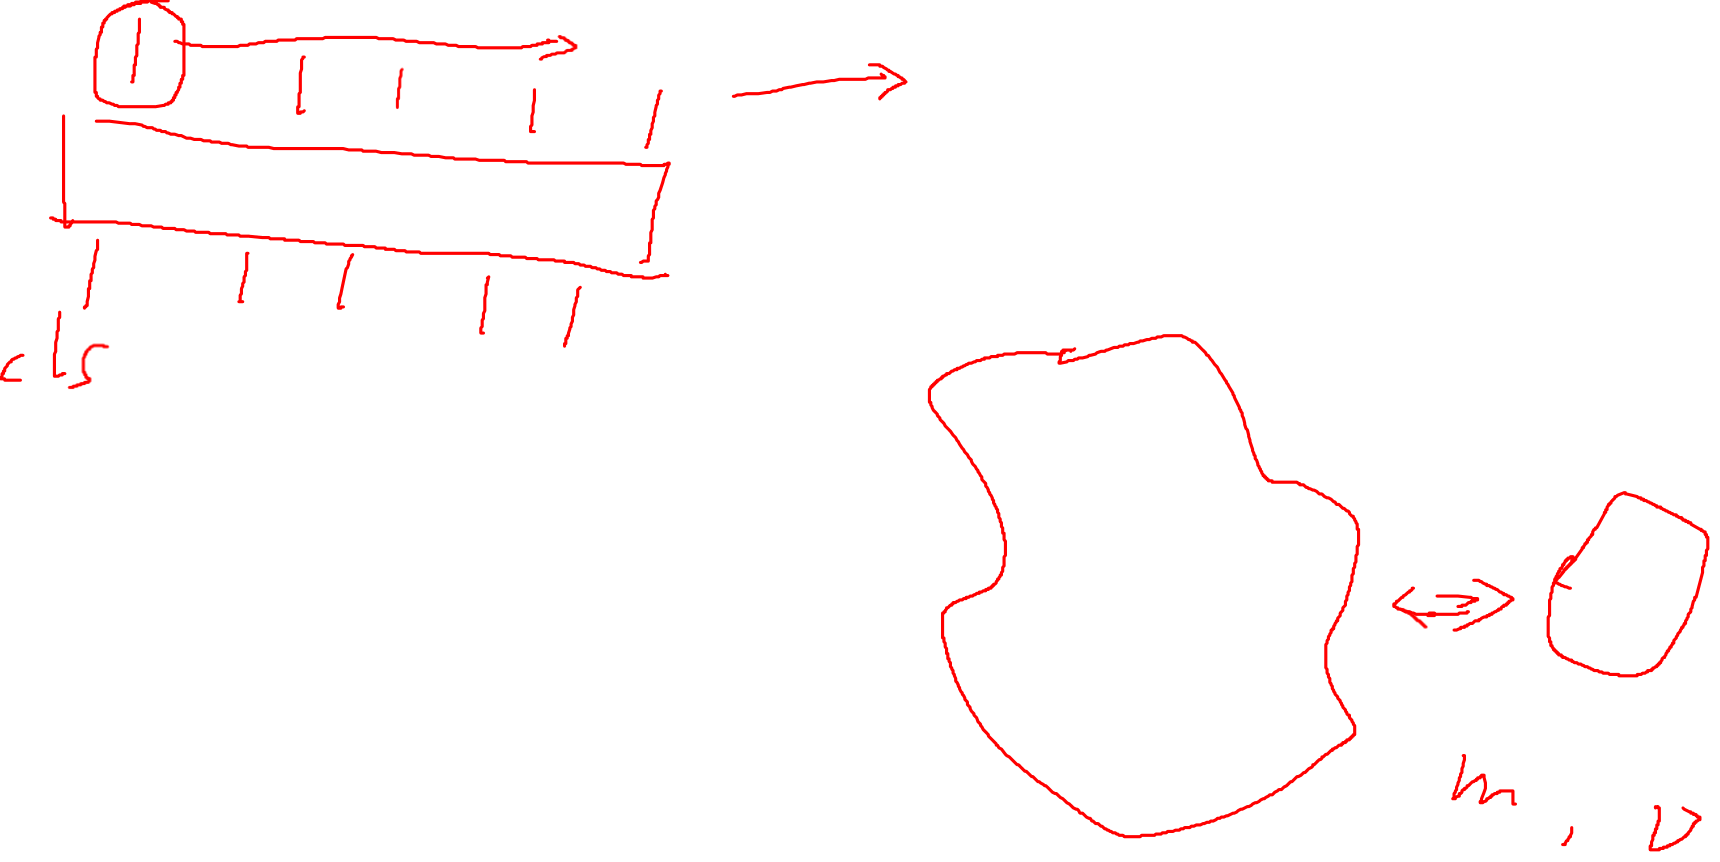 cls
m, v